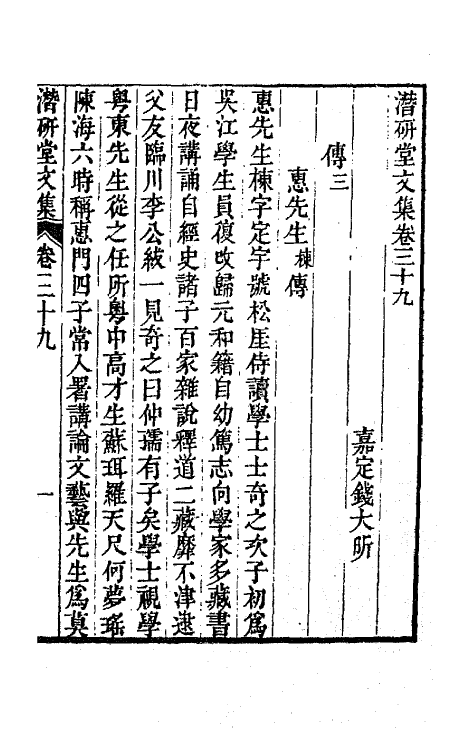 潛硏堂文集卷三十九
嘉定錢大昕
傳三
惠先生棟傳
惠先生棟字定宇號松厓侍讀學士士奇之次子初爲
吳江學生員復攺歸元和籍自幼篤志向學家多藏書
日夜講誦自經史諸子百家雜說釋道二藏靡不津逮
父友臨川李公紱一見奇之曰仲孺有子矣學士視學
粵東先生從之任所粵中高才生蘇珥羅天尺何夢瑤
陳海六時稱惠門四子常入署講論文藝與先生爲莫
潛硏堂文集 卷三十九 一